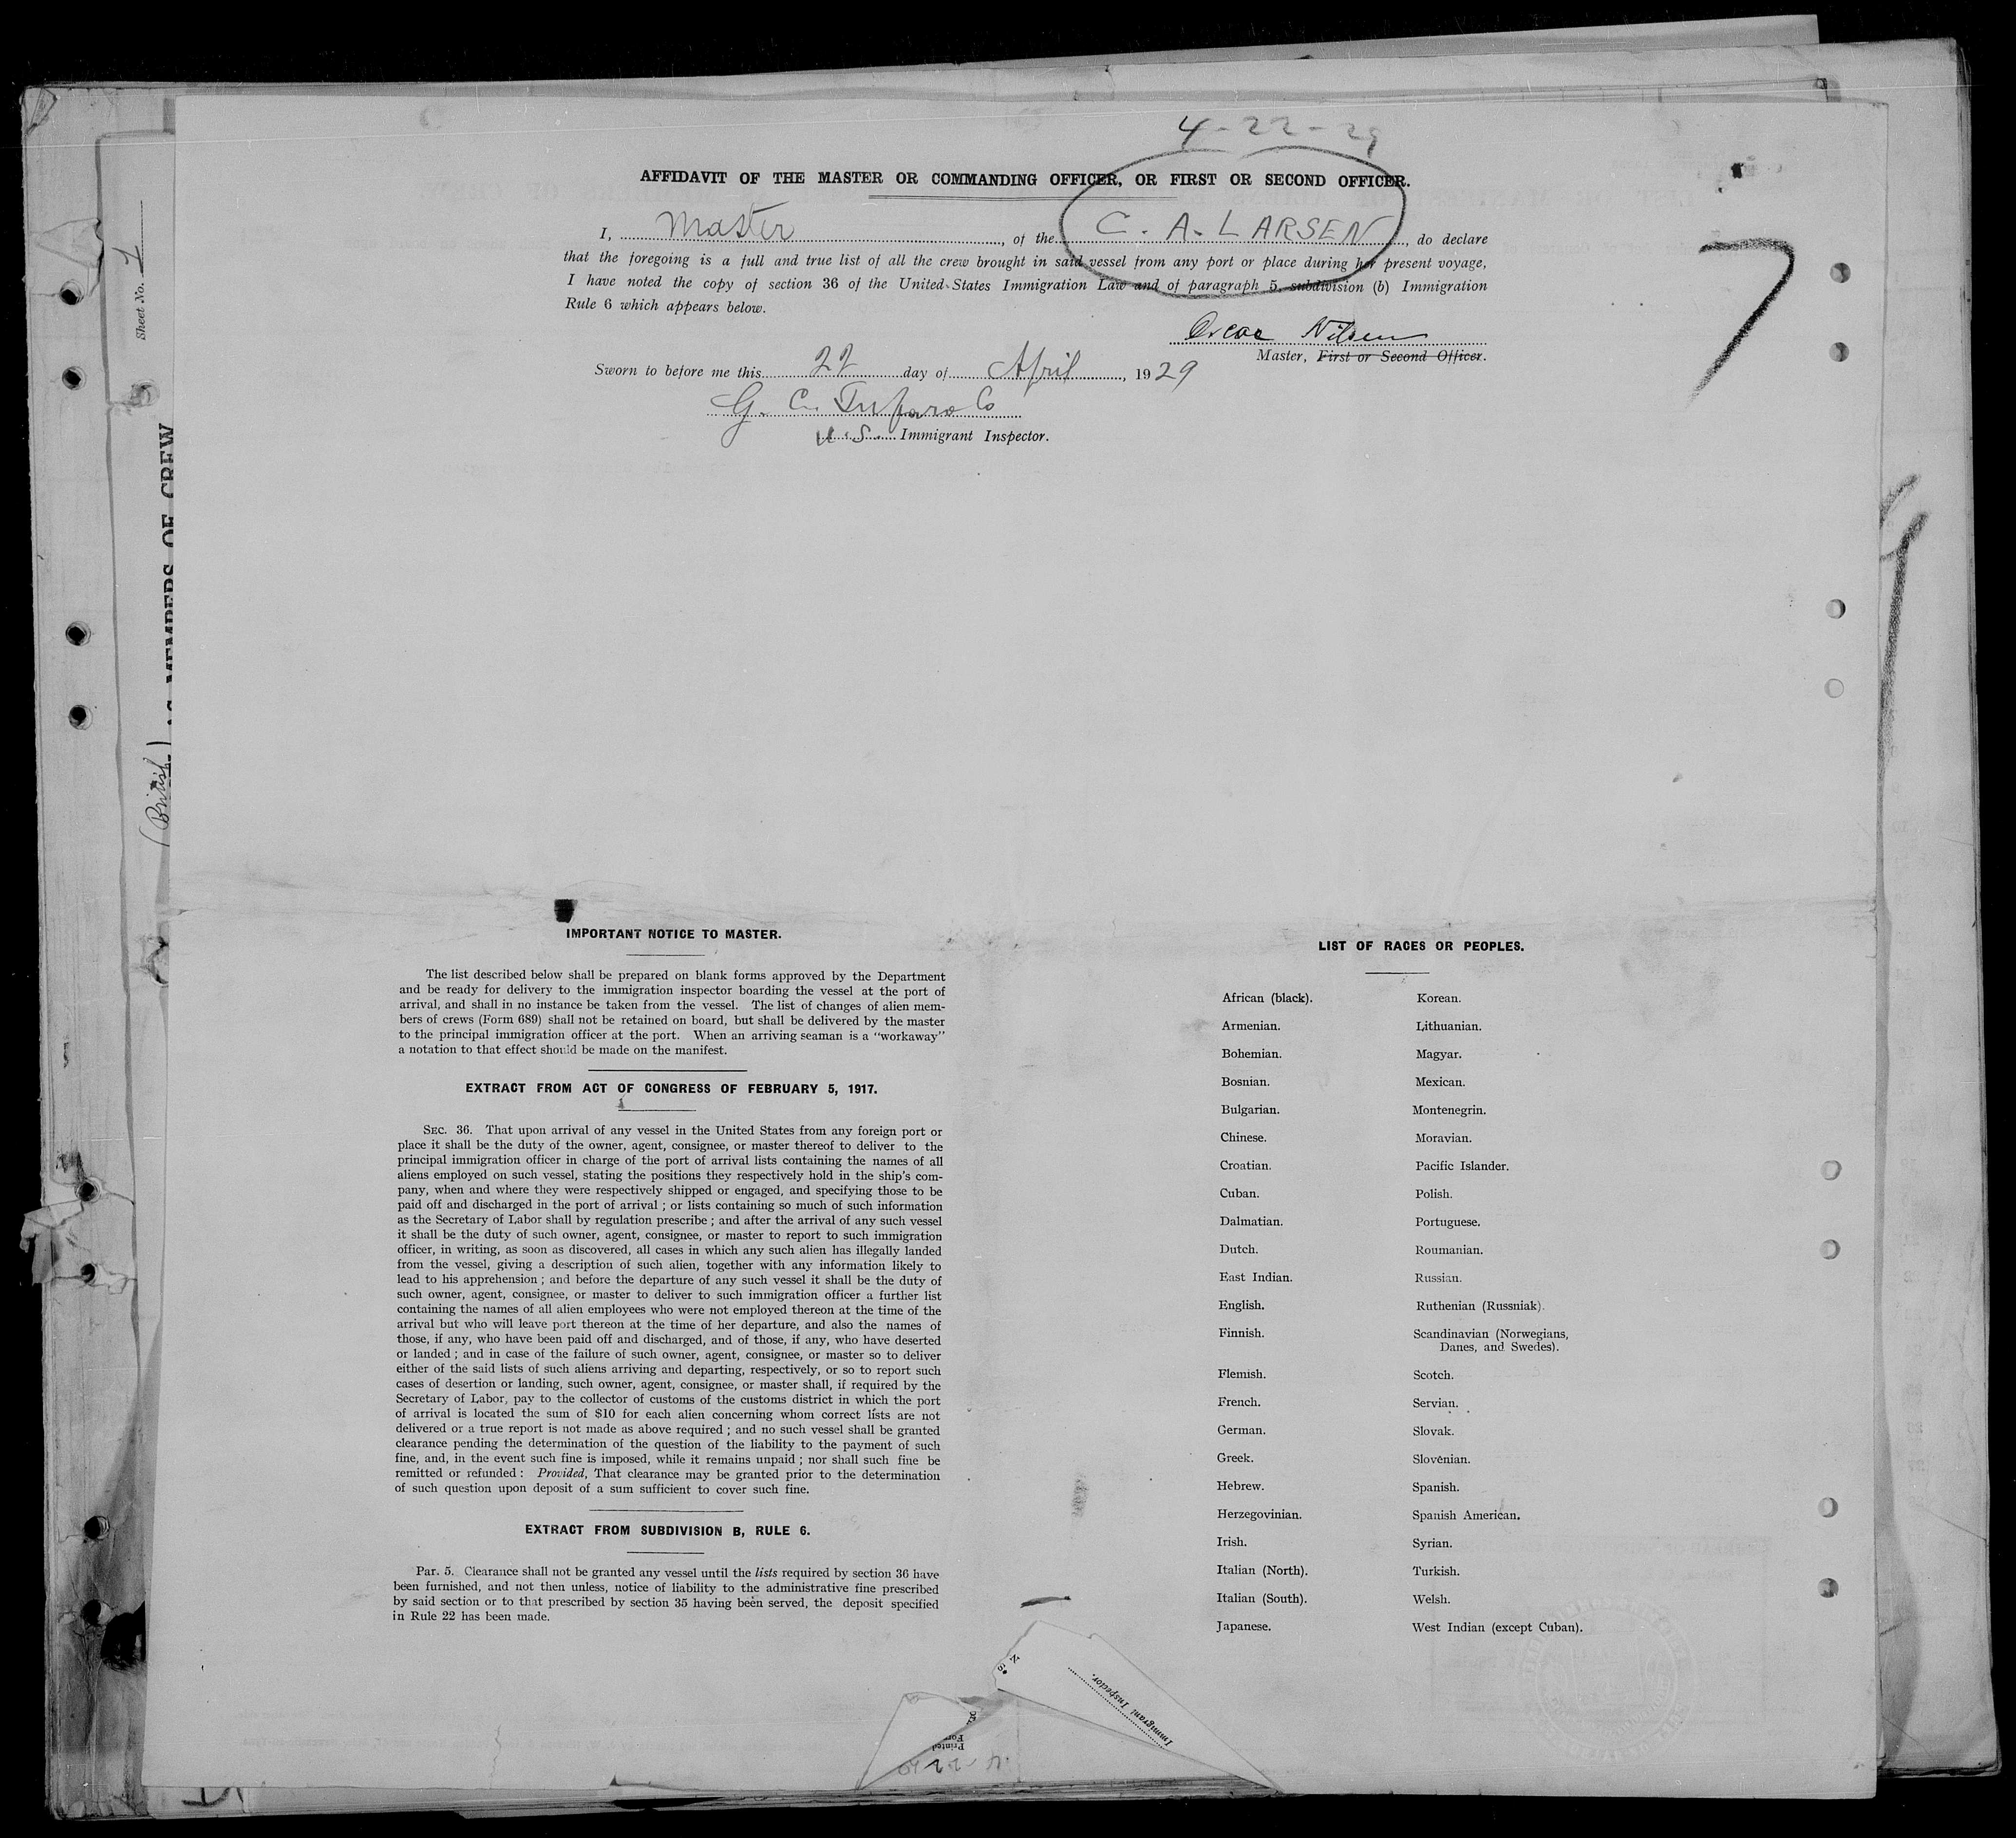 4-22-29
AFFIDAVIT OF THE MASTER OR COMMANDING OFFICER, OR FIRST OR SECOND OFFICER.
I, Master, of the C. A. LARSEN, do declare
that the foregoing is a full and true list of all the crew brought in said vessel from any port or place during her present voyage,
I have noted the copy of section 36 of the United States Immigration Law and of paragraph 5, subdivision (b) Immigration
Rule 6 which appears below.
Oscar Nilsen
Master, First or Second Officer.
Sworn to before me this 22 day of April, 1929
G. C.
U.S. Immigrant Inspector.
7
Sheet No. 1
MEMBERS OF CREW
(British)
IMPORTANT NOTICE TO MASTER.
The list described below shall be prepared on blank forms approved by the Department
and be ready for delivery to the immigration inspector boarding the vessel at the port of
arrival, and shall in no instance be taken from the vessel. The list of changes of alien mem-
bers of crews (Form 689) shall not be retained on board, but shall be delivered by the master
to the principal immigration officer at the port. When an arriving seaman is a "workaway"
a notation to that effect should be made on the manifest.
EXTRACT FROM ACT OF CONGRESS OF FEBRUARY 5, 1917.
SEC. 36. That upon arrival of any vessel in the United States from any foreign port or
place it shall be the duty of the owner, agent, consignee, or master thereof to deliver to the
principal immigration officer in charge of the port of arrival lists containing the names of all
aliens employed on such vessel, stating the positions they respectively hold in the ship's com-
pany, when and where they were respectively shipped or engaged, and specifying those to be
paid off and discharged in the port of arrival; or lists containing so much of such information
as the Secretary of Labor shall by regulation prescribe; and after the arrival of any such vessel
it shall be the duty of such owner, agent, consignee, or master to report to such immigration
officer, in writing, as soon as discovered, all cases in which any such alien has illegally landed
from the vessel, giving a description of such alien, together with any information likely to
lead to his apprehension; and before the departure of any such vessel it shall be the duty of
such owner, agent, consignee, or master to deliver to such immigration officer a further list
containing the names of all alien employees who were not employed thereon at the time of the
arrival but who will leave port thereon at the time of her departure, and also the names of
those, if any, who have been paid off and discharged, and of those, if any, who have deserted
or landed; and in case of the failure of such owner, agent, consignee, or master so to deliver
either of the said lists of such aliens arriving and departing, respectively, or so to report such
cases of desertion or landing, such owner, agent, consignee, or master shall, if required by the
Secretary of Labor, pay to the collector of customs of the customs district in which the port
of arrival is located the sum of $10 for each alien concerning whom correct lists are not
delivered or a true report is not made as above required; and no such vessel shall be granted
clearance pending the determination of the question of the liability to the payment of such
fine, and, in the event such fine is imposed, while it remains unpaid; nor shall such fine be
remitted or refunded: Provided, That clearance may be granted prior to the determination
of such question upon deposit of a sum sufficient to cover such fine.
EXTRACT FROM SUBDIVISION B, RULE 6.
Par. 5. Clearance shall not be granted any vessel until the lists required by section 36 have
been furnished, and not then unless, notice of liability to the administrative fine prescribed
by said section or to that prescribed by section 35 having been served, the deposit specified
in Rule 22 has been made.
LIST OF RACES OR PEOPLES.
African (black). Korean.
Armenian. Lithuanian.
Bohemian. Magyar.
Bosnian. Mexican.
Bulgarian. Montenegrin.
Chinese. Moravian.
Croatian. Pacific Islander.
Cuban. Polish.
Dalmatian. Portuguese.
Dutch. Roumanian.
East Indian. Russian.
English. Ruthenian (Russniak).
Finnish. Scandinavian (Norwegians,
Danes, and Swedes).
Flemish. Scotch.
French. Servian.
German. Slovak.
Greek. Slovenian.
Hebrew. Spanish.
Herzegovinian. Spanish American.
Irish. Syrian.
Italian (North). Turkish.
Italian (South). Welsh.
Japanese. West Indian (except Cuban).
Immigrant Inspector.
Printed